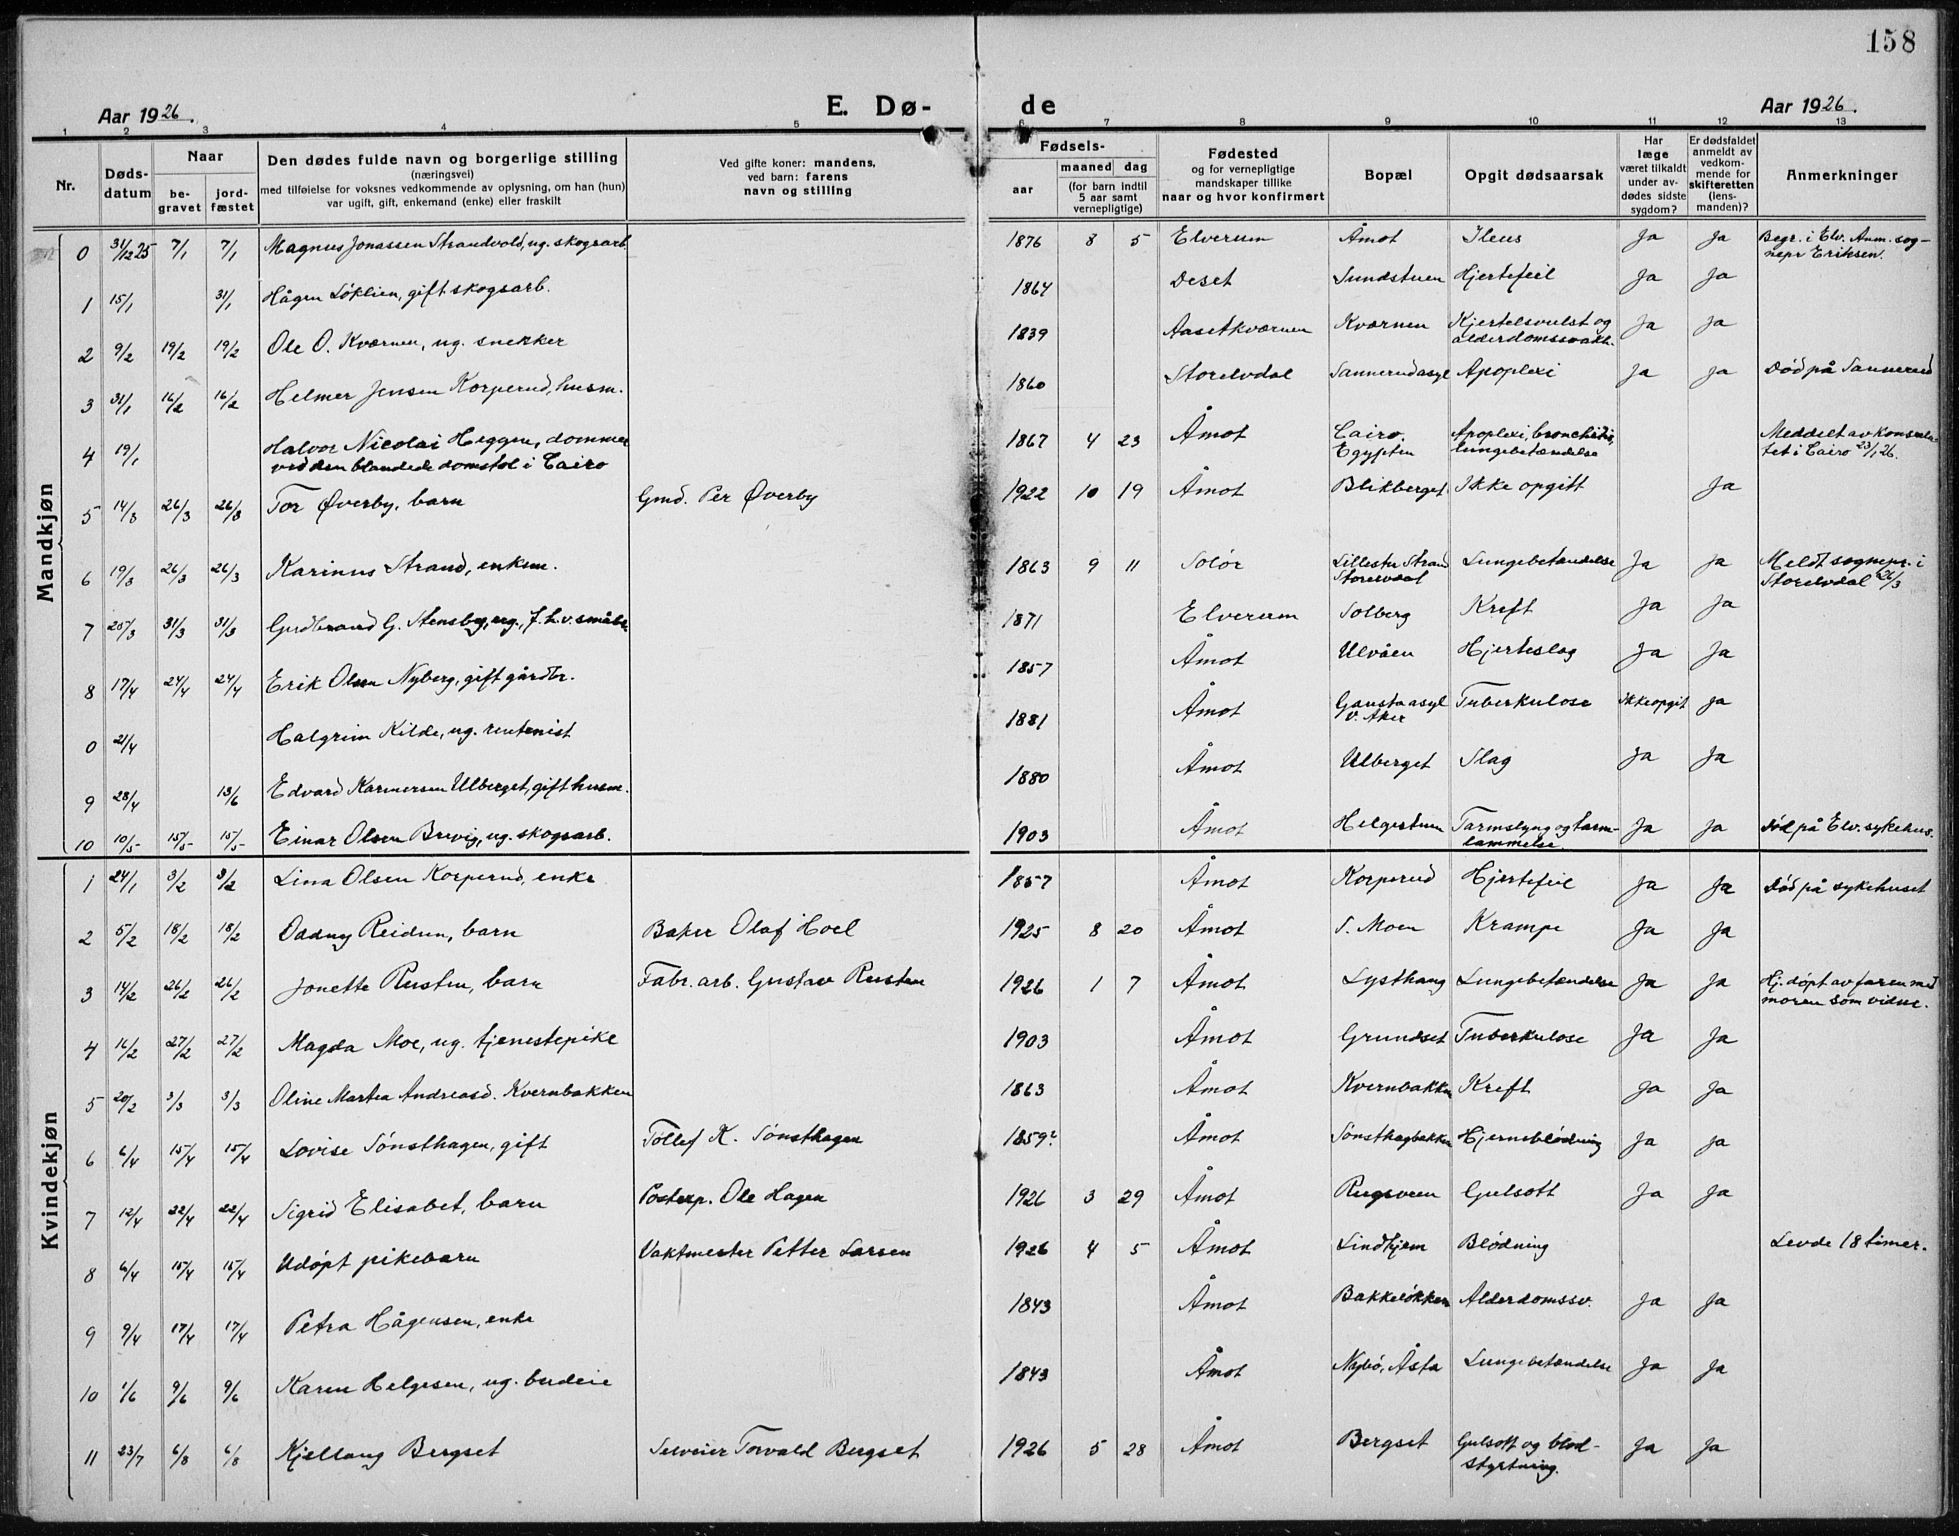 158
Aar 1926.
E. Dø-
de
Aar 1926.
1 2 3 4 5 6 7 8 9 10 11 12 13
Nr.
Døds-
datum
Naar
be-
gravet
jord-
fæstet
Den dødes fulde navn og borgerlige stilling
(næringsvei)
med tilføielse for voksnes vedkommende av oplysning, om han (hun)
var ugift, gift, enkemand (enke) eller fraskilt
Ved gifte koner: mandens,
ved barn: farens
navn og stilling
Fødsels-
aar
maaned dag
(for barn indtil
5 aar samt
vernepligtige)
Fødested
og for vernepligtige
mandskaper tillike
naar og hvor konfirmert
Bopæl
Opgit dødsaarsak
Har
læge
været tilkaldt
under av-
dødes sidste
sygdom?
Er dødsfaldet
anmeldt av
vedkom-
mende for
skifteretten
(lens-
manden)?
Anmerkninger
Mandkjøn
0 31/12 25 7/1 7/1 Magnus Jonassen Strandvold, ug. skogsarb. 1876 8 5 Elverum Åmot Ileus Ja Ja Begr. i Elv. Anm. sog-
nepr Eriksen.
1 15/1 31/1 Hågen Løklien, gift skogsarb. 1864 Deset Sundstuen Hjertefeil Ja Ja
2 9/2 19/2 19/2 Ole O. Kværnen, ug. snekker 1839 Aasetkværnen Kværnen Kjertelsvulst og
alderdomssvakh. Ja Ja
3 31/1 16/2 16/2 Helmer Jensen Korperud, husm. 1860 Storelvdal Sannerudasyl Apoplexi Ja Ja Død på Sannerud
4 19/1 Halvor Nicolai Heggen, dommer
ved den blandede domstol i Cairo 1867 4 23 Åmot Cairo,
Egypten Apoplexi, bronchitis,
lungebetændelse Meddelt av konsula-
tet i Cairo 23/1 26.
5 14/3 26/3 26/3 Tor Øverby, barn Gmd. Per Øverby 1922 10 19 Åmot Blikberget Ikke opgitt Ja
6 19/3 26/3 26/3 Karinus Strand, enkem. 1863 9 11 Solør Lillestu Strand
Storelvdal Lungebetændelse Ja Ja Meldt sognepr. i
Storelvdal 26/3
7 25/3 31/3 31/3 Gudbrand G. Stensby, ug., f.h.v. småbr. 1871 Elverum Solberg Kreft Ja Ja
8 17/4 24/4 24/4 Erik Olsen Nyberg, gift gårdbr. 1857 Åmot Ulvåen Hjerteslag Ja Ja
0 21/4 Halgrim Kilde, ug. rentenist 1881 Åmot Gaustaasyl
v. Aker Tuberkulose Ikke opgit Ja
9 28/4 13/6 Edvard Karmersen Ulberget, gift husm. 1880 Åmot Ulberget Slag Ja Ja
10 10/5 15/5 15/5 Einar Olsen Brevig, ug. skogsarb. 1903 Åmot Helgestuen Tarmslyng og tarm-
lammelse. Ja Ja Død på Elv. sykehus.
Kvindekjøn
1 24/1 3/2 3/2 Lina Olsen Korperud, enke 1857 Åmot Korperud Hjertefeil Ja Ja Død på sykehuset
2 5/2 18/2 18/2 Oddny Reidun, barn Baker Olaf Hoel 1925 8 20 Åmot S. Moen Krampe Ja Ja
3 14/2 26/2 26/2 Jonette Rusten, barn Fabr. arb. Gustav Rusten 1926 1 7 Åmot Lysthaug Lungebetændelse Ja Ja Hj. døpt av faren med
moren som vidne.
4 16/2 27/2 27/2 Magda Moe, ug. tjenestepike 1903 Åmot Grundset Tuberkulose Ja Ja
5 20/2 3/3 3/3 Oline Martea Andreasd. Kvernbakken 1863 Åmot Kvernbakken Kreft Ja Ja
6 6/4 15/4 15/4 Lovise Sønsthagen, gift Tollef K. Sønsthagen 1859? Åmot Sønsthagbakken Hjerneblødning Ja Ja
7 12/4 22/4 22/4 Sigrid Elisabet, barn Postexp. Ole Hagen 1926 3 29 Åmot Rugsveen Gulsott Ja Ja
8 6/4 15/4 15/4 Udøpt pikebarn Vaktmester Petter Larsen 1926 4 5 Åmot Lindhjem Blødning Levde 18 timer.
9 9/4 17/4 17/4 Petra Hågensen, enke 1843 Åmot Bakkeløkken Alderdomssv. Ja Ja
10 1/6 9/6 9/6 Karen Helgesen, ug. budeie 1843 Åmot Nybø, Åsta Lungebetændelse Ja Ja
11 23/7 6/8 6/8 Kjellaug Bergset Selveier Torvald Bergset 1926 5 28 Åmot Bergset Gulsott og blod-
styrtning. Ja Ja